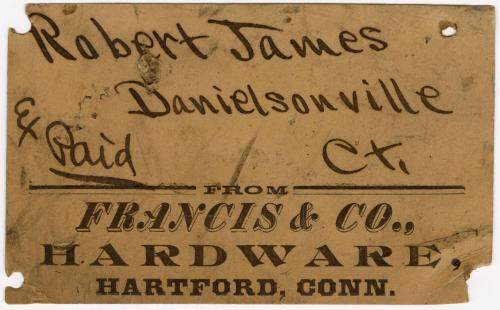 Robert James
Danielsonville
Ex
Paid
Ct.
FROM
FRANCIS & CO.,
HARDWARE,
HARTFORD, CONN.